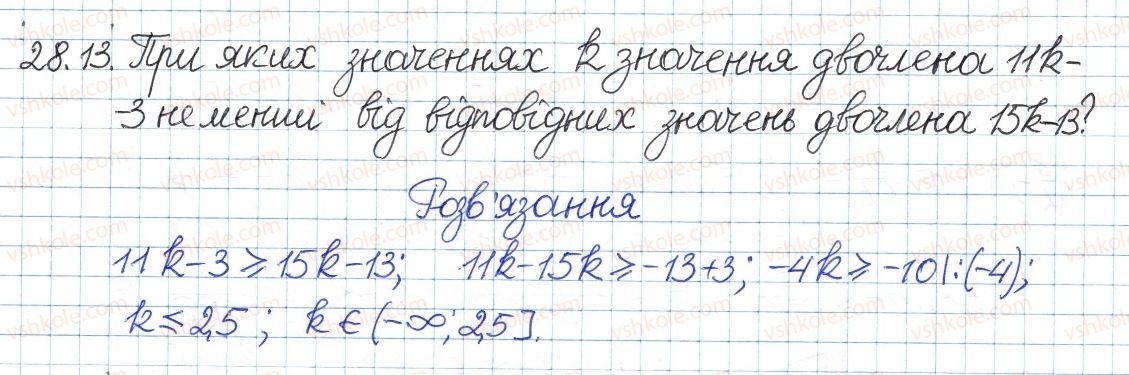 28.13. При яких значеннях k значення двочлена 11k-
-3 не менші від відповідних значень двочлена 15k-13?
Розв'язання
11k-3 ⩾ 15k-13; 11k-15k ⩾ -13+3; -4k ⩾ -10|:(-4);
k ≤ 2,5; k ∈ (-∞; 2,5].